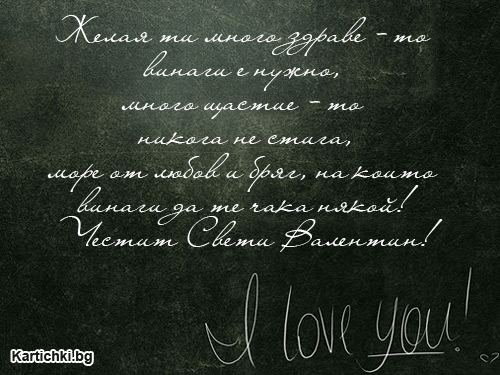 Желая ти много здраве - то
винаги е нужно,
много щастие - то
никога не стига,
море от любов и бряг, на който
винаги да те чака някой!
Честит Свети Валентин!
I love you!
Kartichki.bg